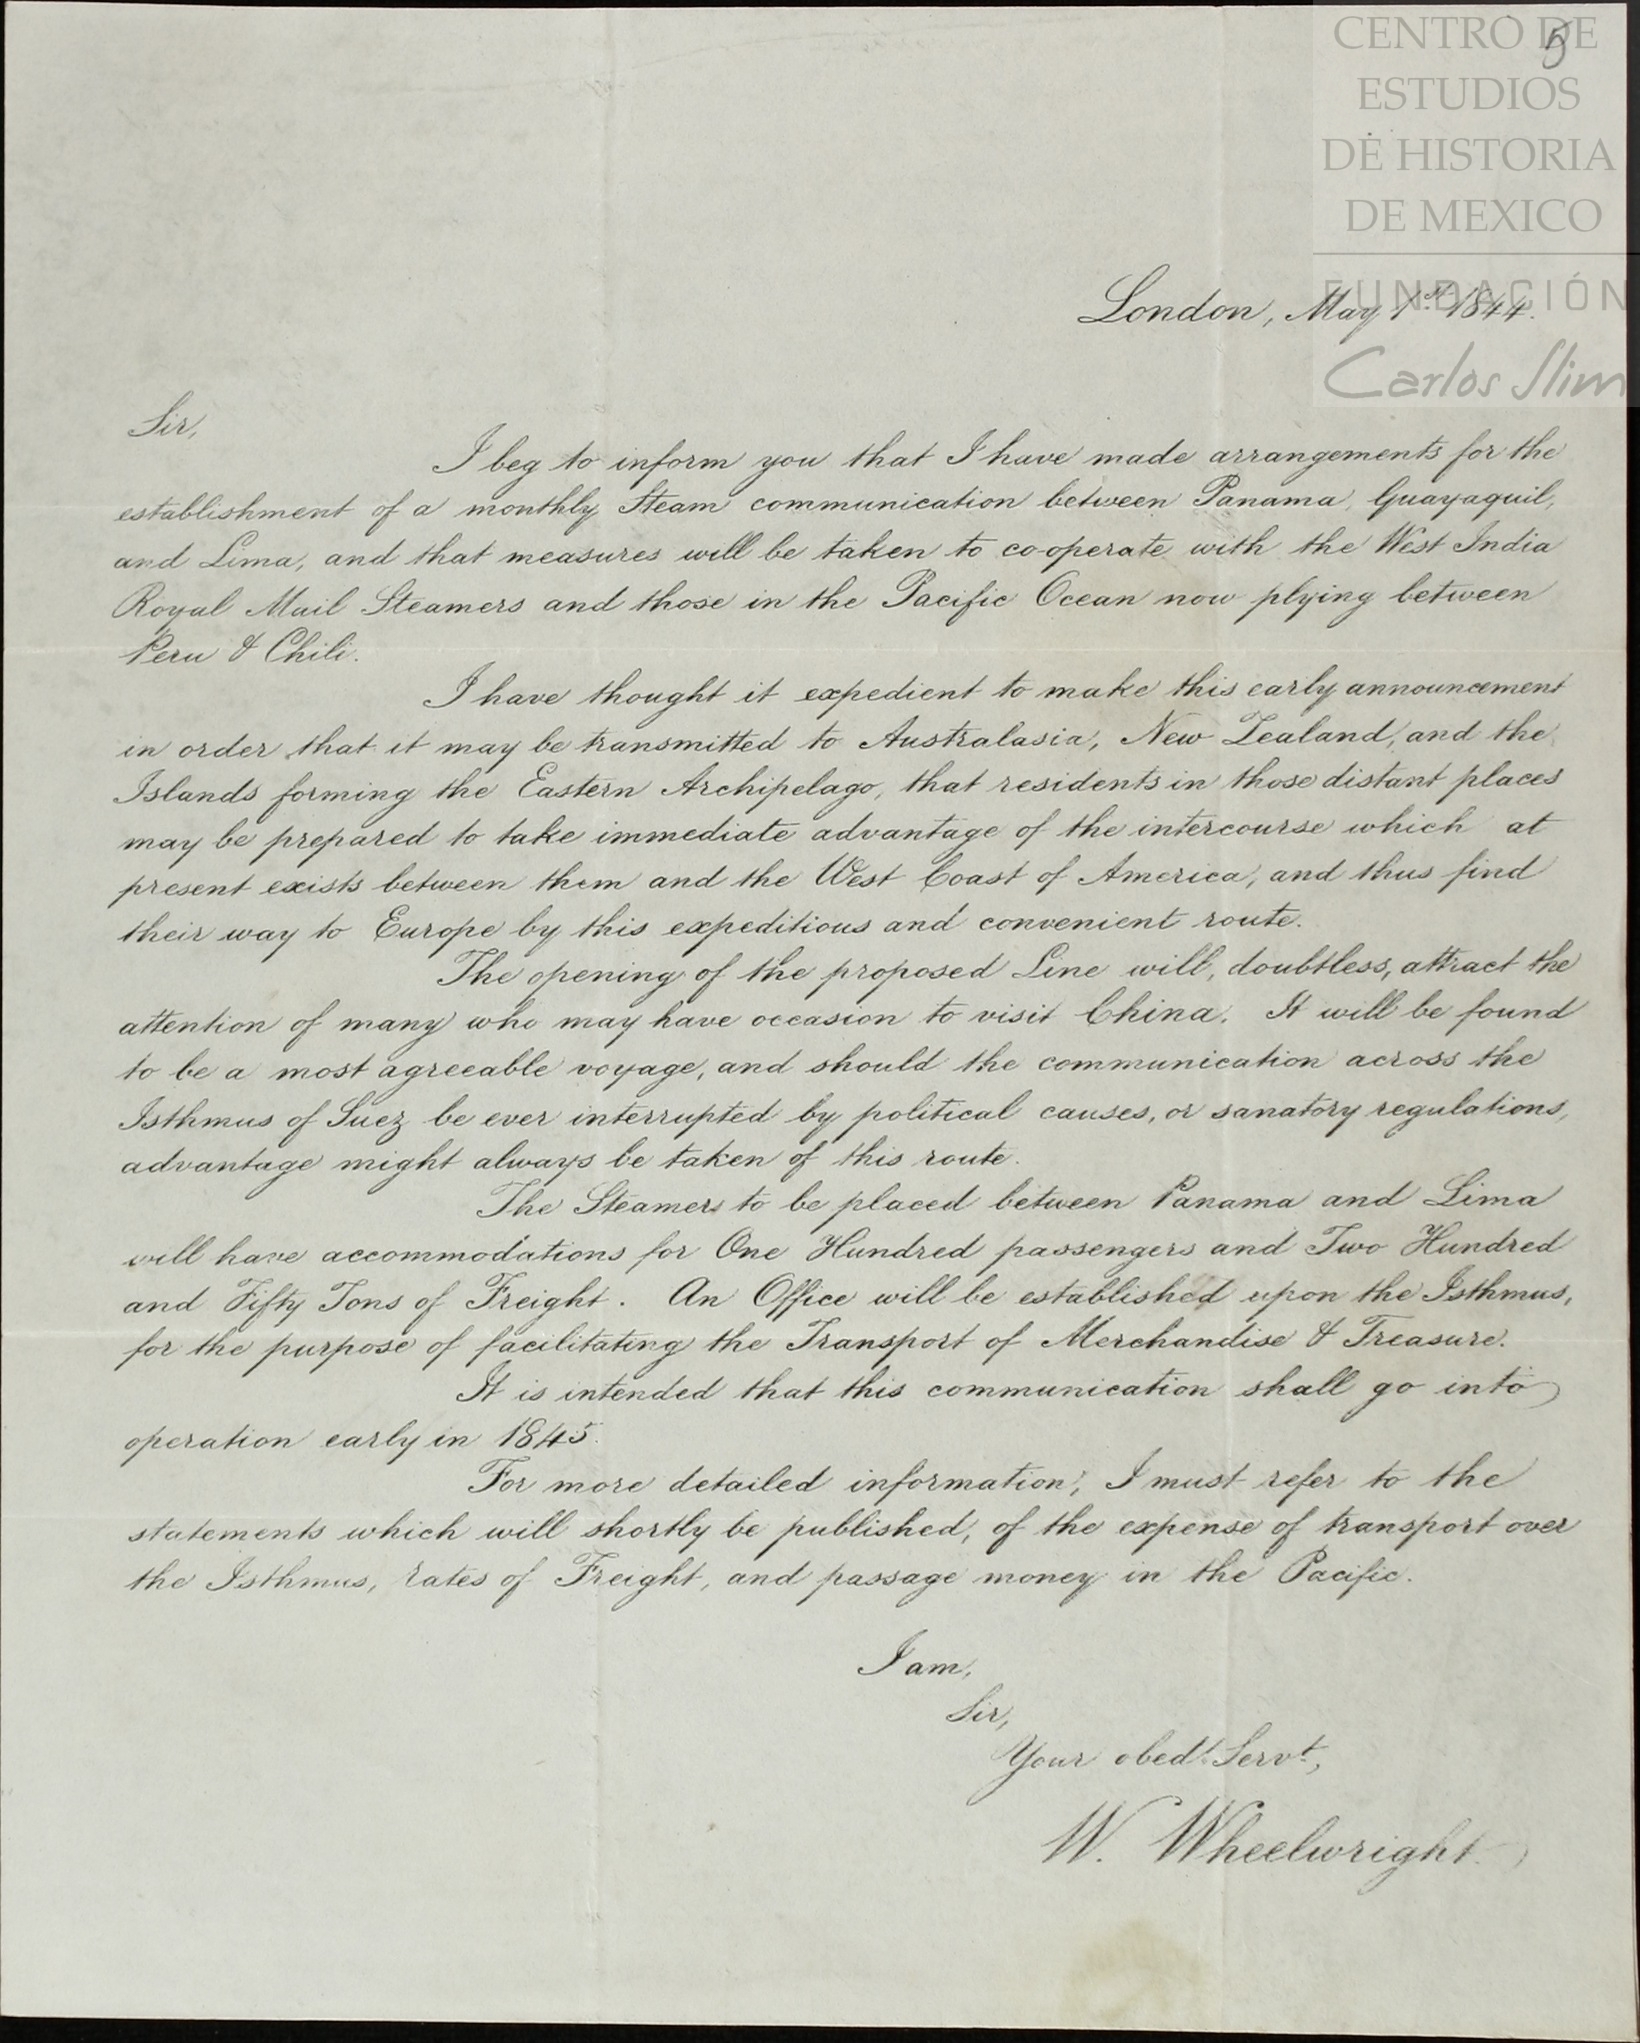 CENTRO DE
5
ESTUDIOS
DE HISTORIA
DE MEXICO
FUNDACIÓN
Carlos Slim
London, May 1st 1844.
Sir,
I beg to inform you that I have made arrangements for the
establishment of a monthly Steam communication between Panama, Guayaquil,
and Lima, and that measures will be taken to co-operate with the West India
Royal Mail Steamers and those in the Pacific Ocean now plying between
Peru & Chili.
I have thought it expedient to make this early announcement
in order that it may be transmitted to Australasia, New Zealand, and the
Islands forming the Eastern Archipelago, that residents in those distant places
may be prepared to take immediate advantage of the intercourse which at
present exists between them and the West Coast of America, and thus find
their way to Europe by this expeditious and convenient route.
The opening of the proposed Line will, doubtless, attract the
attention of many who may have occasion to visit China. It will be found
to be a most agreeable voyage, and should the communication across the
Isthmus of Suez be ever interrupted by political causes, or sanatory regulations,
advantage might always be taken of this route.
The Steamers to be placed between Panama and Lima
will have accommodations for One Hundred passengers and Two Hundred
and Fifty Tons of Freight. An Office will be established upon the Isthmus,
for the purpose of facilitating the Transport of Merchandise & Treasure.
It is intended that this communication shall go into
operation early in 1845.
For more detailed information, I must refer to the
statements which will shortly be published, of the expense of transport over
the Isthmus, rates of Freight, and passage money in the Pacific.
I am,
Sir,
Your obedt. Servt,
W. Wheelwright.